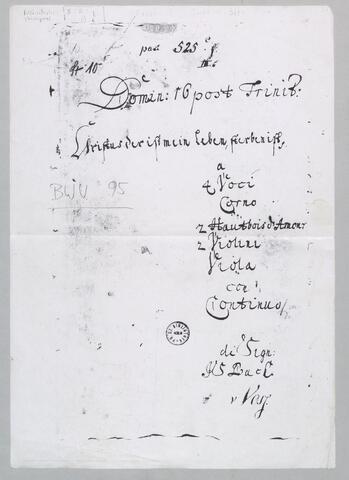 pas 525
№ 10
Domin: 16 post Trinit:
Christus der ist mein Leben, sterben ist
a
4 Voci
Corno
2 Hautbois d'Amour
2 Violini
Viola
con
Continuo
BWV 95
di Sign:
JS Bach